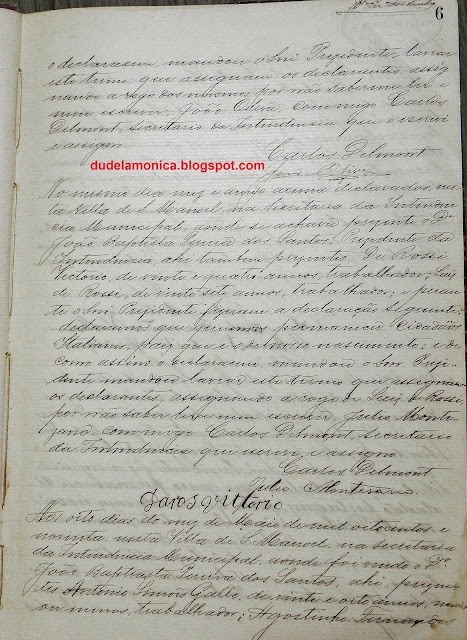 6
o declararem, mandou o Snr Presidente, lavrar
este termo, que assignam os declarantes, assig
nando a rogo dos mesmos por não saberem ler e
nem escrever, João Oliva, commigo Carlos
Delmont, secretario da Intendencia que o escrevi
e assigno.
Carlos Delmont
João Oliva
dudelamonica.blogspot.com
No mesmo dia mez e anno acima declarados, nes
ta Villa de S. Manoel, na Secretaria da Intenden
cia Municipal, aonde se achava presente o Dr
João Baptista Pereira dos Santos, Presidente da
Intendencia, ahi tambem presentes De Rossi
Victorio, de vinte e quatro annos, trabalhador; Luis
de Rossi, de vinte sete annos, trabalhador, e peran
te o Snr Presidente fizeram a declaração seguinte:
declaramos que queremos permanecer Cidadãos
Italianos, paiz que é o de nosso nascimento; e de
como assim o declararem, mandou o Snr Presi-
dente mandou lavrar este termo que assignam
os declarantes, assignando a rogo de Luis de Rossi
por não saber ler nem escrever, Julio Monte-
zano, commigo Carlos Delmont, secretario
da Intendencia que escrevi, e assigno
Carlos Delmont
Julio Montesano
Darossi Vittorio
Aos oito dias do mez de Maio de mil oitocentos e
noventa nesta Villa de S. Manoel, na Secretaria
da Intendencia Municipal, aonde foi vindo o Dr
João Baptista Pereira dos Santos, ahi presen-
tes Antonio Gallo, de vinte e oito annos, mais
ou menos, trabalhador; Agostinho Fernandes